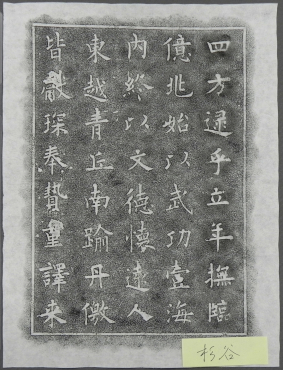 四方逮乎立年撫臨
億兆始以武功壹海
內終以文德懷遠人
東越青丘南踰丹徼
皆獻琛奉贄重譯来
杉谷